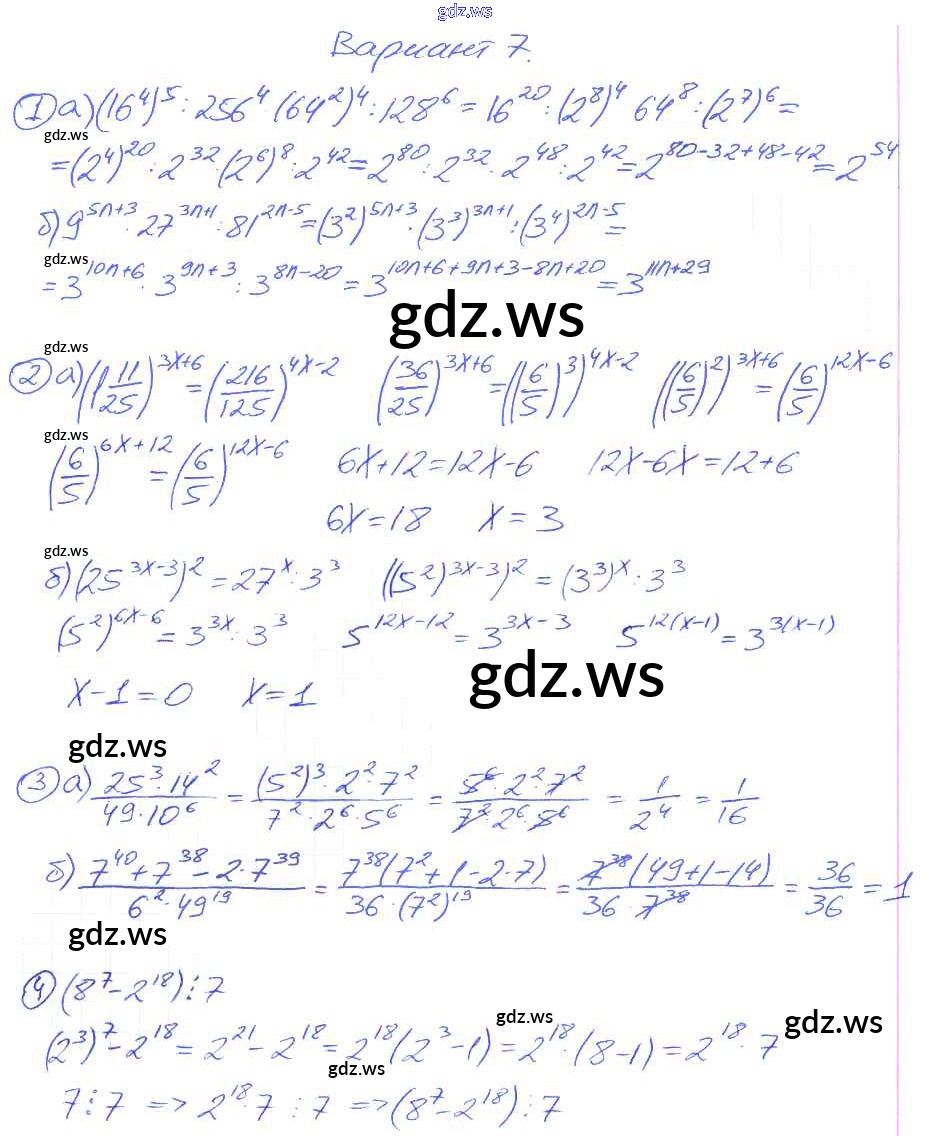 gdz.ws
Вариант 7.
① а) (16⁴)⁵ : 256⁴ · (64²)⁴ : 128⁶ = 16²⁰ : (2⁸)⁴ 64⁸ : (2⁷)⁶ =
gdz.ws
= (2⁴)²⁰ : 2³² · (2⁶)⁸ : 2⁴² = 2⁸⁰ : 2³² · 2⁴⁸ : 2⁴² = 2^(80-32+48-42) = 2⁵⁴
б) 9^(5n+3) · 27^(3n+1) : 81^(2n-5) = (3²)^(5n+3) · (3³)^(3n+1) : (3⁴)^(2n-5) =
gdz.ws
= 3^(10n+6) · 3^(9n+3) : 3^(8n-20) = 3^(10n+6+9n+3-8n+20) = 3^(11n+29)
gdz.ws
gdz.ws
② а) (1 11/25)^(3x+6) = (216/125)^(4x-2) (36/25)^(3x+6) = ((6/5)³)^(4x-2) ((6/5)²)^(3x+6) = (6/5)^(12x-6)
gdz.ws
(6/5)^(6x+12) = (6/5)^(12x-6) 6x+12=12x-6 12x-6x=12+6
6x=18 x=3
gdz.ws
б) (25^(3x-3))² = 27^x : 3³ ((5²)^(3x-3))² = (3³)^x : 3³
(5²)^(6x-6) = 3^(3x) : 3³ 5^(12x-12) = 3^(3x-3) 5^(12(x-1)) = 3^(3(x-1))
gdz.ws
x-1=0 x=1
gdz.ws
③ а) (25³·14²)/(49·10⁶) = ((5²)³·2²·7²)/(7²·2⁶·5⁶) = (5⁶·2²·7²)/(7²·2⁶·5⁶) = 1/2⁴ = 1/16
б) (7⁴⁰+7³⁸-2·7³⁹)/(6²·49¹⁹) = (7³⁸(7²+1-2·7))/(36·(7²)¹⁹) = (7³⁸(49+1-14))/(36·7³⁸) = 36/36 = 1
gdz.ws
④ (8⁷-2¹⁸)⋮7
gdz.ws
gdz.ws
(2³)⁷-2¹⁸ = 2²¹-2¹⁸ = 2¹⁸(2³-1) = 2¹⁸·(8-1) = 2¹⁸·7
gdz.ws
7⋮7 => 2¹⁸·7⋮7 => (8⁷-2¹⁸)⋮7